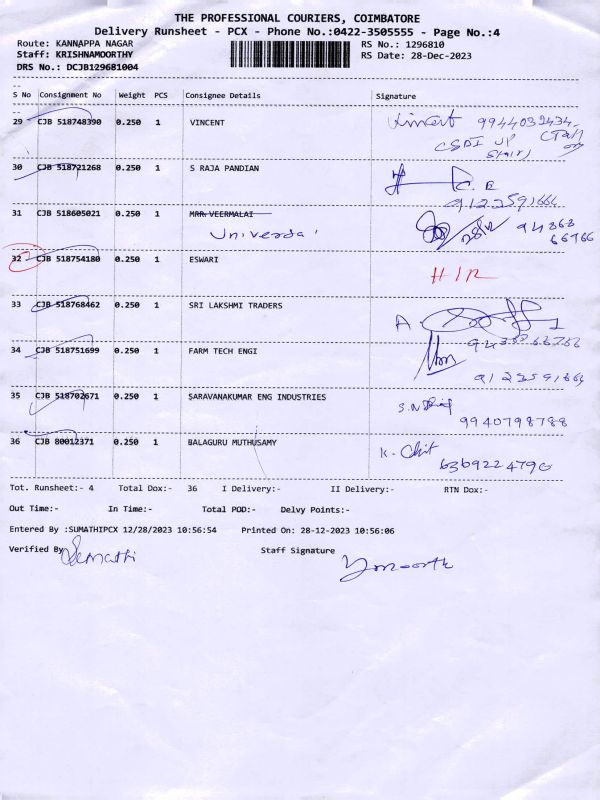 THE PROFESSIONAL COURIERS, COIMBATORE
Delivery Runsheet - PCX - Phone No.:0422-3505555 - Page No.:4
Route: KANNAPPA NAGAR RS No.: 1296810
Staff: KRISHNAMOORTHY RS Date: 28-Dec-2023
DRS No.: DCJB129681004
S No Consignment No Weight PCS Consignee Details Signature
29 CJB 518748390 0.250 1 VINCENT Vincent 9944032434
CSDI UP
30 CJB 518721268 0.250 1 S RAJA PANDIAN
9123591664
31 CJB 518605021 0.250 1 MRR VEERMALAI
Universal
32 CJB 518754180 0.250 1 ESWARI HIR
33 CJB 518768462 0.250 1 SRI LAKSHMI TRADERS A.
34 CJB 518751699 0.250 1 FARM TECH ENGI
9123591664
35 CJB 518702671 0.250 1 SARAVANAKUMAR ENG INDUSTRIES S.N
9940798788
36 CJB 80012371 0.250 1 BALAGURU MUTHUSAMY K.
6369224790
Tot. Runsheet:- 4 Total Dox:- 36 I Delivery:- II Delivery:- RTN Dox:-
Out Time:- In Time:- Total POD:- Delvy Points:-
Entered By :SUMATHIPCX 12/28/2023 10:56:54 Printed On: 28-12-2023 10:56:06
Verified By Sumathi Staff Signature